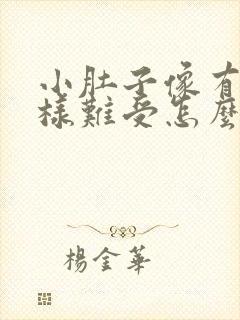 小肚子像有
樣難受怎麼
楊金華